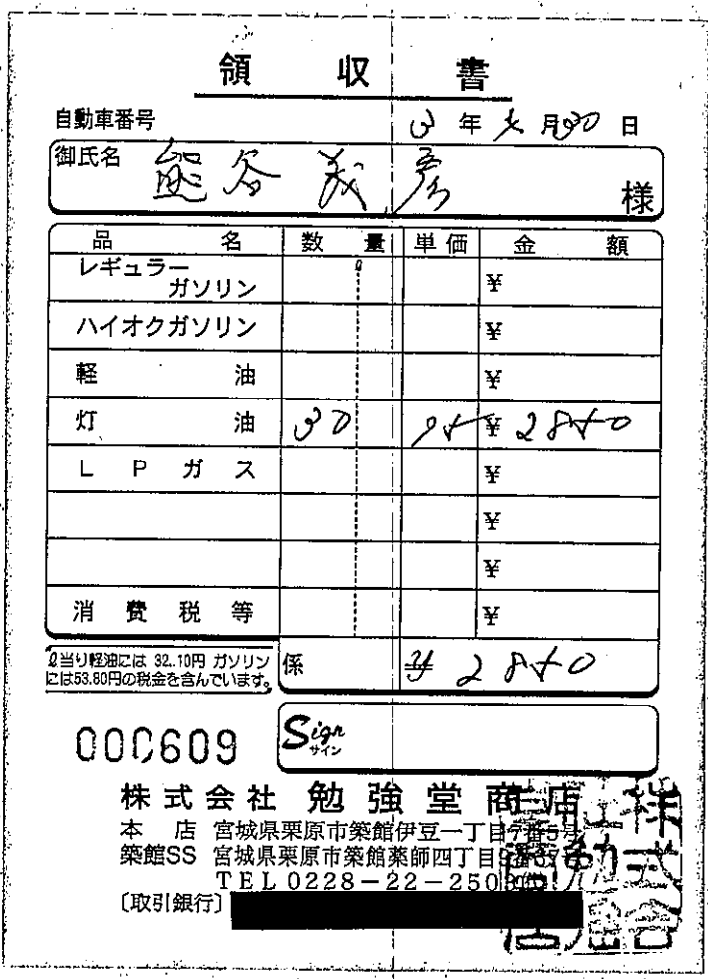 領収書
自動車番号
3 年 月 30 日
御氏名 熊谷 義彦 様
品名 数量 単価 金額
レギュラー
ガソリン ¥
ハイオクガソリン ¥
軽油 ¥
灯油 30 95 ¥ 2850
LPガス ¥
¥
¥
消費税等 ¥
ℓ当り軽油には 32.10円 ガソリン
には53.80円の税金を含んでいます。
係 ¥ 2850
000609
Sign
サイン
株式会社 勉強堂商店
本店 宮城県栗原市築館伊豆一丁目7番5号
築館SS 宮城県栗原市築館薬師四丁目
TEL 0228-22-250
〔取引銀行〕